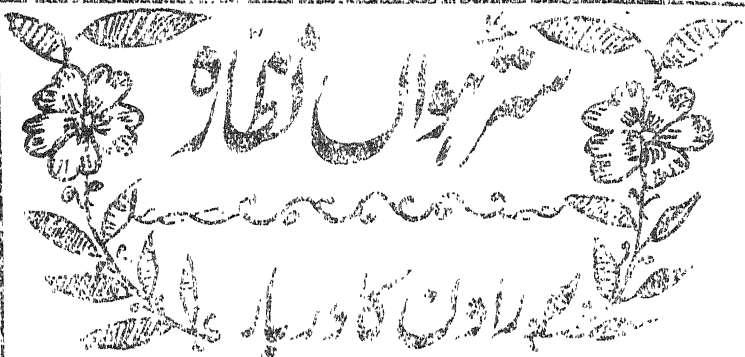 سترہواں نظارہ
راون کا دربار